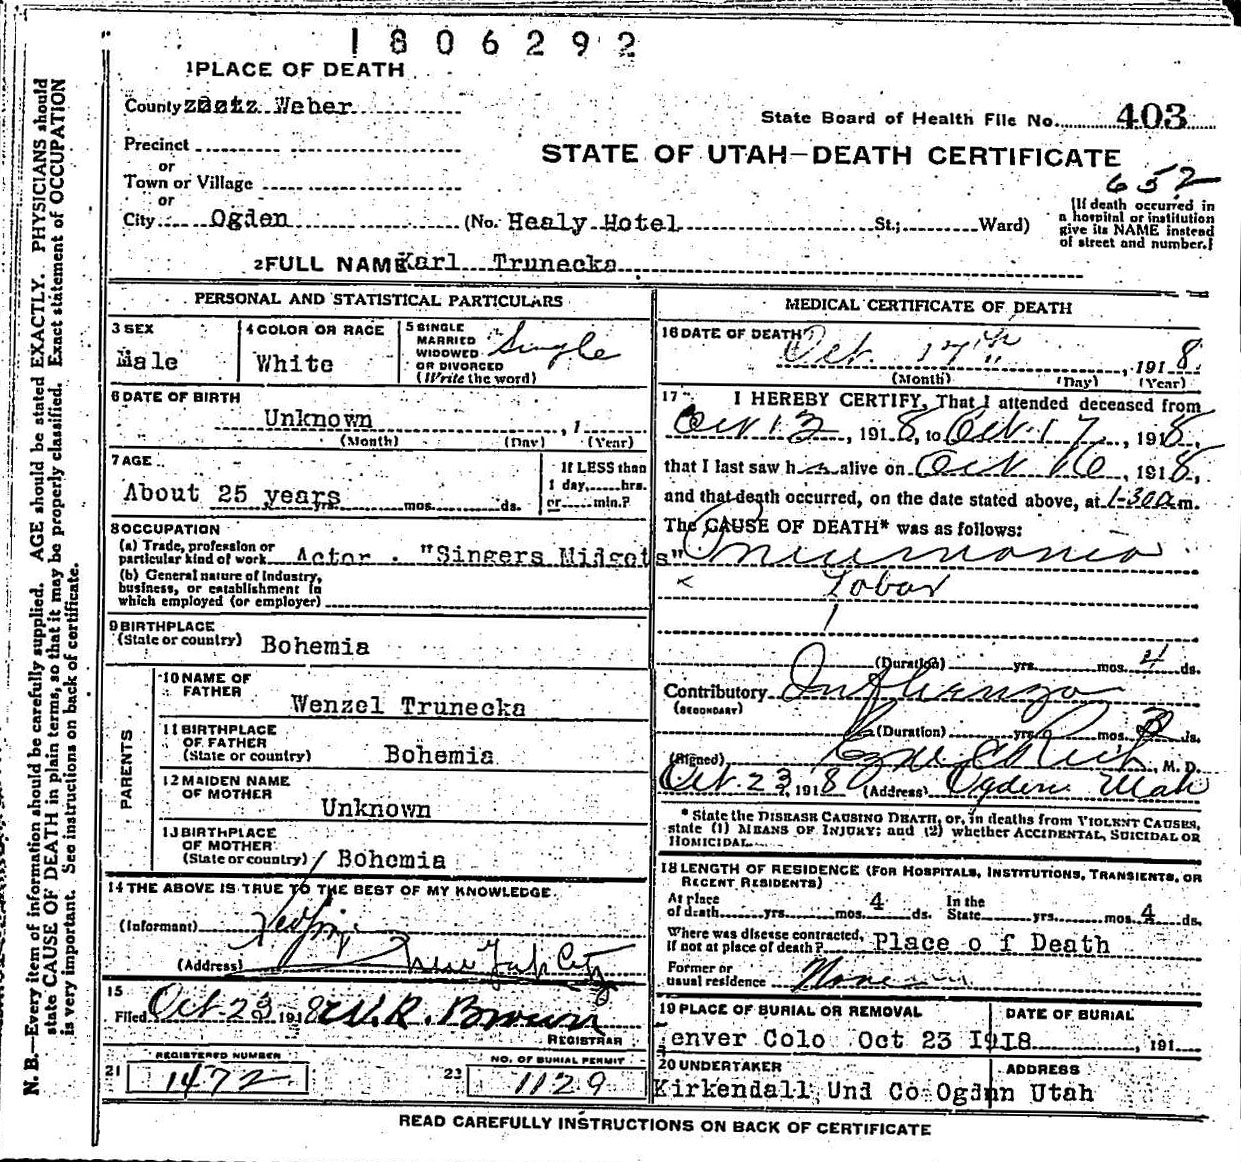 1806292
1 PLACE OF DEATH
County zbatz Weber
State Board of Health File No. 403
Precinct
or
STATE OF UTAH—DEATH CERTIFICATE
Town or Village
652
or
City Ogden (No. Healy Hotel St.; Ward)
[If death occurred in
a hospital or institution
give its NAME instead
of street and number.]
2 FULL NAME Karl Trunecka
PERSONAL AND STATISTICAL PARTICULARS
3 SEX
Male
4 COLOR OR RACE
White
5 SINGLE
MARRIED
WIDOWED
OR DIVORCED
(Write the word)
Single
6 DATE OF BIRTH
Unknown , 1
(Month) (Day) (Year)
7 AGE
About 25 years yrs. mos. ds.
If LESS than
1 day, hrs.
or min.?
8 OCCUPATION
(a) Trade, profession or
particular kind of work Actor . "Singers Midgets"
(b) General nature of Industry,
business, or establishment in
which employed (or employer)
9 BIRTHPLACE
(State or country) Bohemia
PARENTS
10 NAME OF
FATHER
Wenzel Trunecka
11 BIRTHPLACE
OF FATHER
(State or country) Bohemia
12 MAIDEN NAME
OF MOTHER
Unknown
13 BIRTHPLACE
OF MOTHER
(State or country) Bohemia
14 THE ABOVE IS TRUE TO THE BEST OF MY KNOWLEDGE
(Informant)
(Address) New York City
15
Filed Oct-23 1918 W. R. Brown
REGISTRAR
REGISTERED NUMBER
21 1472
NO. OF BURIAL PERMIT
23 1129
MEDICAL CERTIFICATE OF DEATH
16 DATE OF DEATH
Oct. 17th , 1918
(Month) (Day) (Year)
17 I HEREBY CERTIFY, That I attended deceased from
Oct 13 , 1918, to Oct. 17 , 1918,
that I last saw h alive on Oct 16 , 1918,
and that death occurred, on the date stated above, at 1-30a m.
The CAUSE OF DEATH* was as follows:
Pneumonia
Lobar
(Duration) yrs. mos. 4 ds.
Contributory Influenza
(SECONDARY)
(Duration) yrs. mos. ds.
(Signed) Rich , M. D.
Oct. 23, 1918 (Address) Ogden Utah
* State the DISEASE CAUSING DEATH, or, in deaths from VIOLENT CAUSES,
state (1) MEANS OF INJURY; and (2) whether ACCIDENTAL, SUICIDAL OR
HOMICIDAL.
18 LENGTH OF RESIDENCE (FOR HOSPITALS, INSTITUTIONS, TRANSIENTS, OR
RECENT RESIDENTS)
At place
of death yrs. mos. 4 ds.
In the
State yrs. mos. 4 ds.
Where was disease contracted,
if not at place of death? Place o f Death
Former or
usual residence None
19 PLACE OF BURIAL OR REMOVAL
DATE OF BURIAL
enver Colo Oct 23 I9I8 , 191
20 UNDERTAKER
ADDRESS
Kirkendall Und Co Ogdnn Utah
READ CAREFULLY INSTRUCTIONS ON BACK OF CERTIFICATE
N. B.—Every item of information should be carefully supplied. AGE should be stated EXACTLY. PHYSICIANS should
state CAUSE OF DEATH in plain terms, so that it may be properly classified. Exact statement of OCCUPATION
is very important. See instructions on back of certificate.